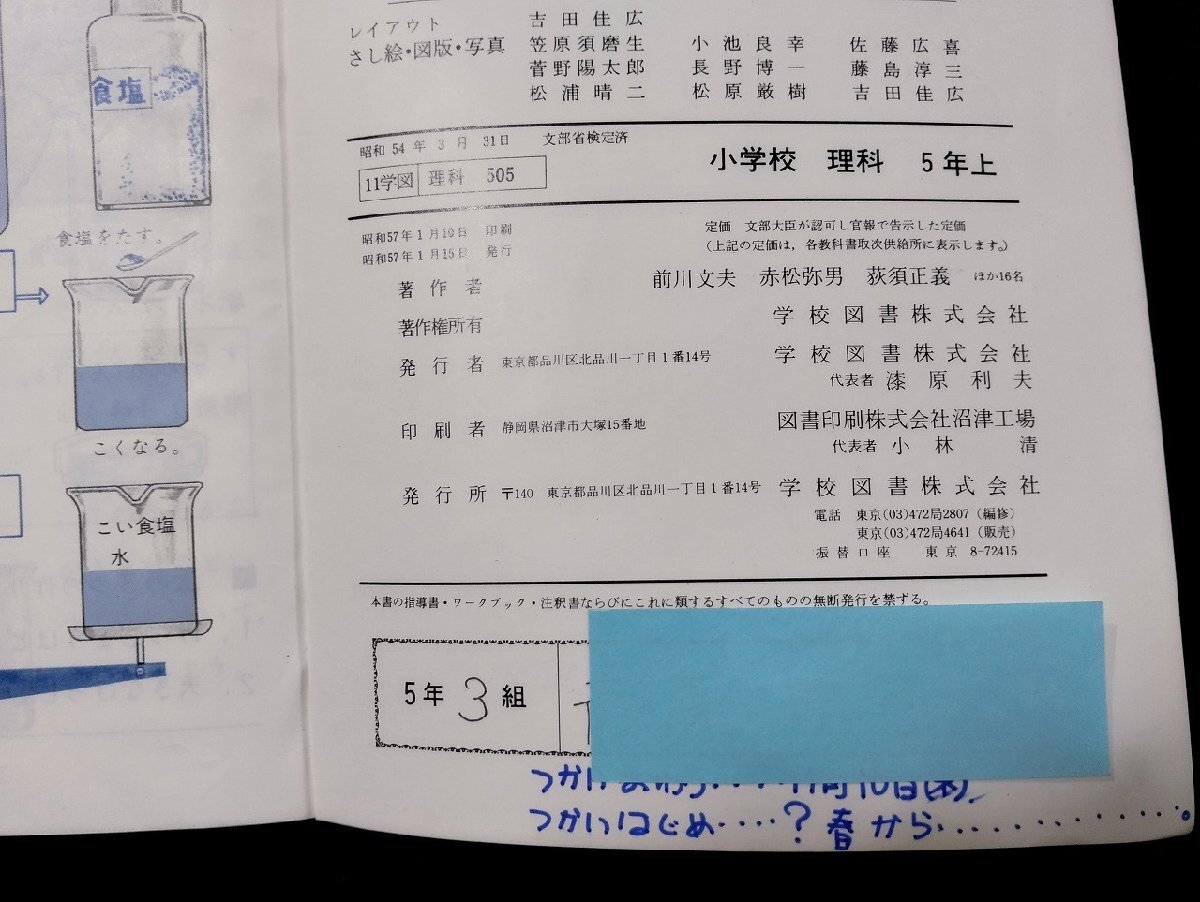 食塩
食塩をたす。
こくなる。
こい食塩
水
レイアウト 吉田佳広
さし絵・図版・写真 笠原須磨生 小池良幸 佐藤広喜
菅野陽太郎 長野博一 藤島淳三
松浦晴二 松原厳樹 吉田佳広
昭和54年3月31日 文部省検定済
11学図 理科 505 小学校 理科 5年上
定価 文部大臣が認可し官報で告示した定価
(上記の定価は,各教科書取次供給所に表示します。)
昭和57年1月10日 印刷
昭和57年1月15日 発行
著作者 前川文夫 赤松弥男 荻須正義 ほか16名
著作権所有 学校図書株式会社
発行者 東京都品川区北品川一丁目1番14号 学校図書株式会社
代表者 漆原利夫
印刷者 静岡県沼津市大塚15番地 図書印刷株式会社沼津工場
代表者 小林 清
発行所 〒140 東京都品川区北品川一丁目1番14号 学校図書株式会社
電話 東京(03)472局2807(編修)
東京(03)472局4641(販売)
振替口座 東京 8-72415
本書の指導書・ワークブック・注釈書ならびにこれに類するすべてのものの無断発行を禁ずる。
5年3組
10日(木)
つかいはじめ····?春から············。